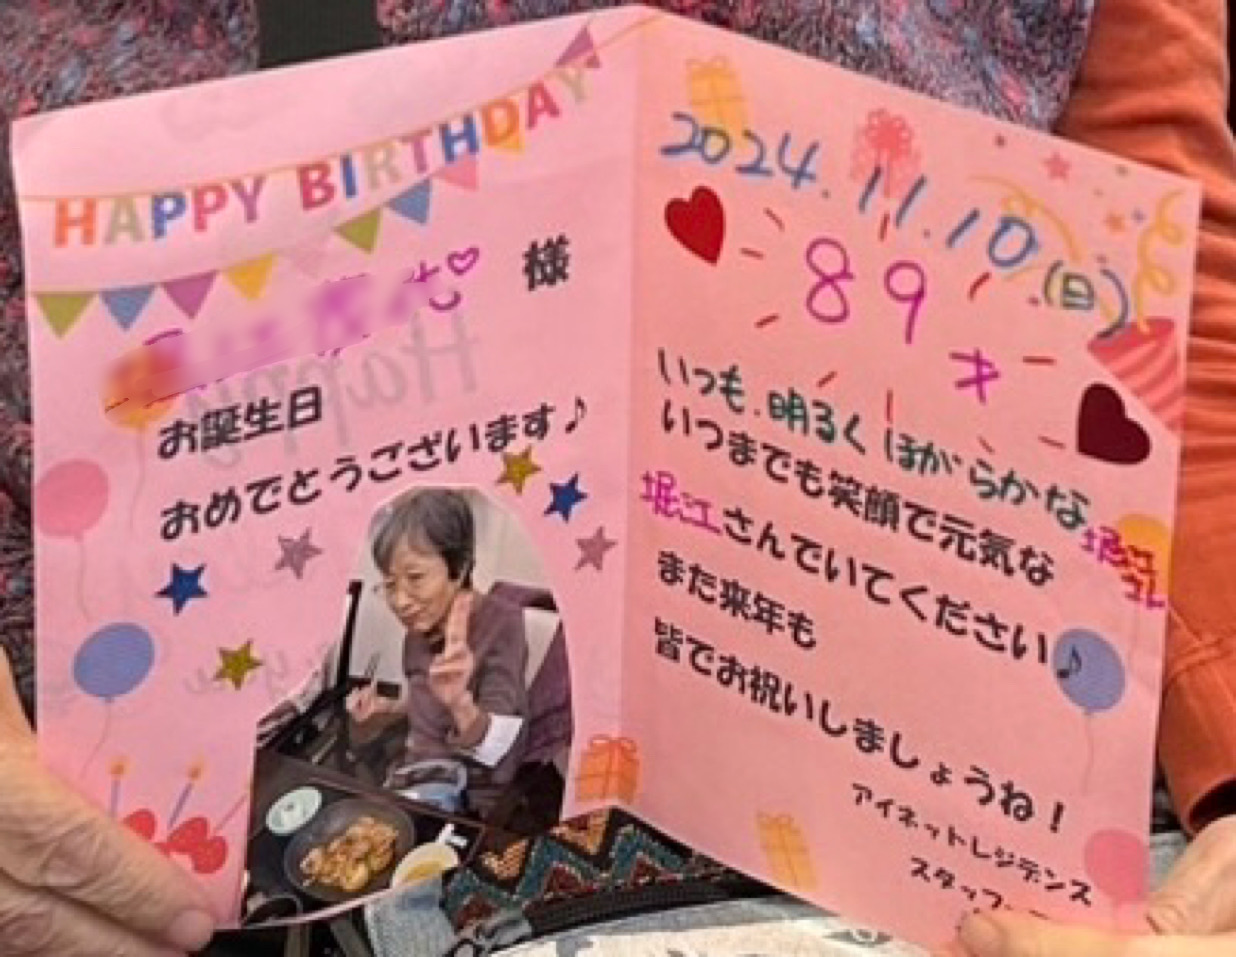 HAPPY BIRTHDAY
様
お誕生日
おめでとうございます♪
2024.11.10(日)
89才
いつも、明るくほがらかな堀江さん
いつまでも笑顔で元気な
堀江さんでいてください♪
また来年も
皆でお祝いしましょうね!
アイネットレジデンス
スタッフ